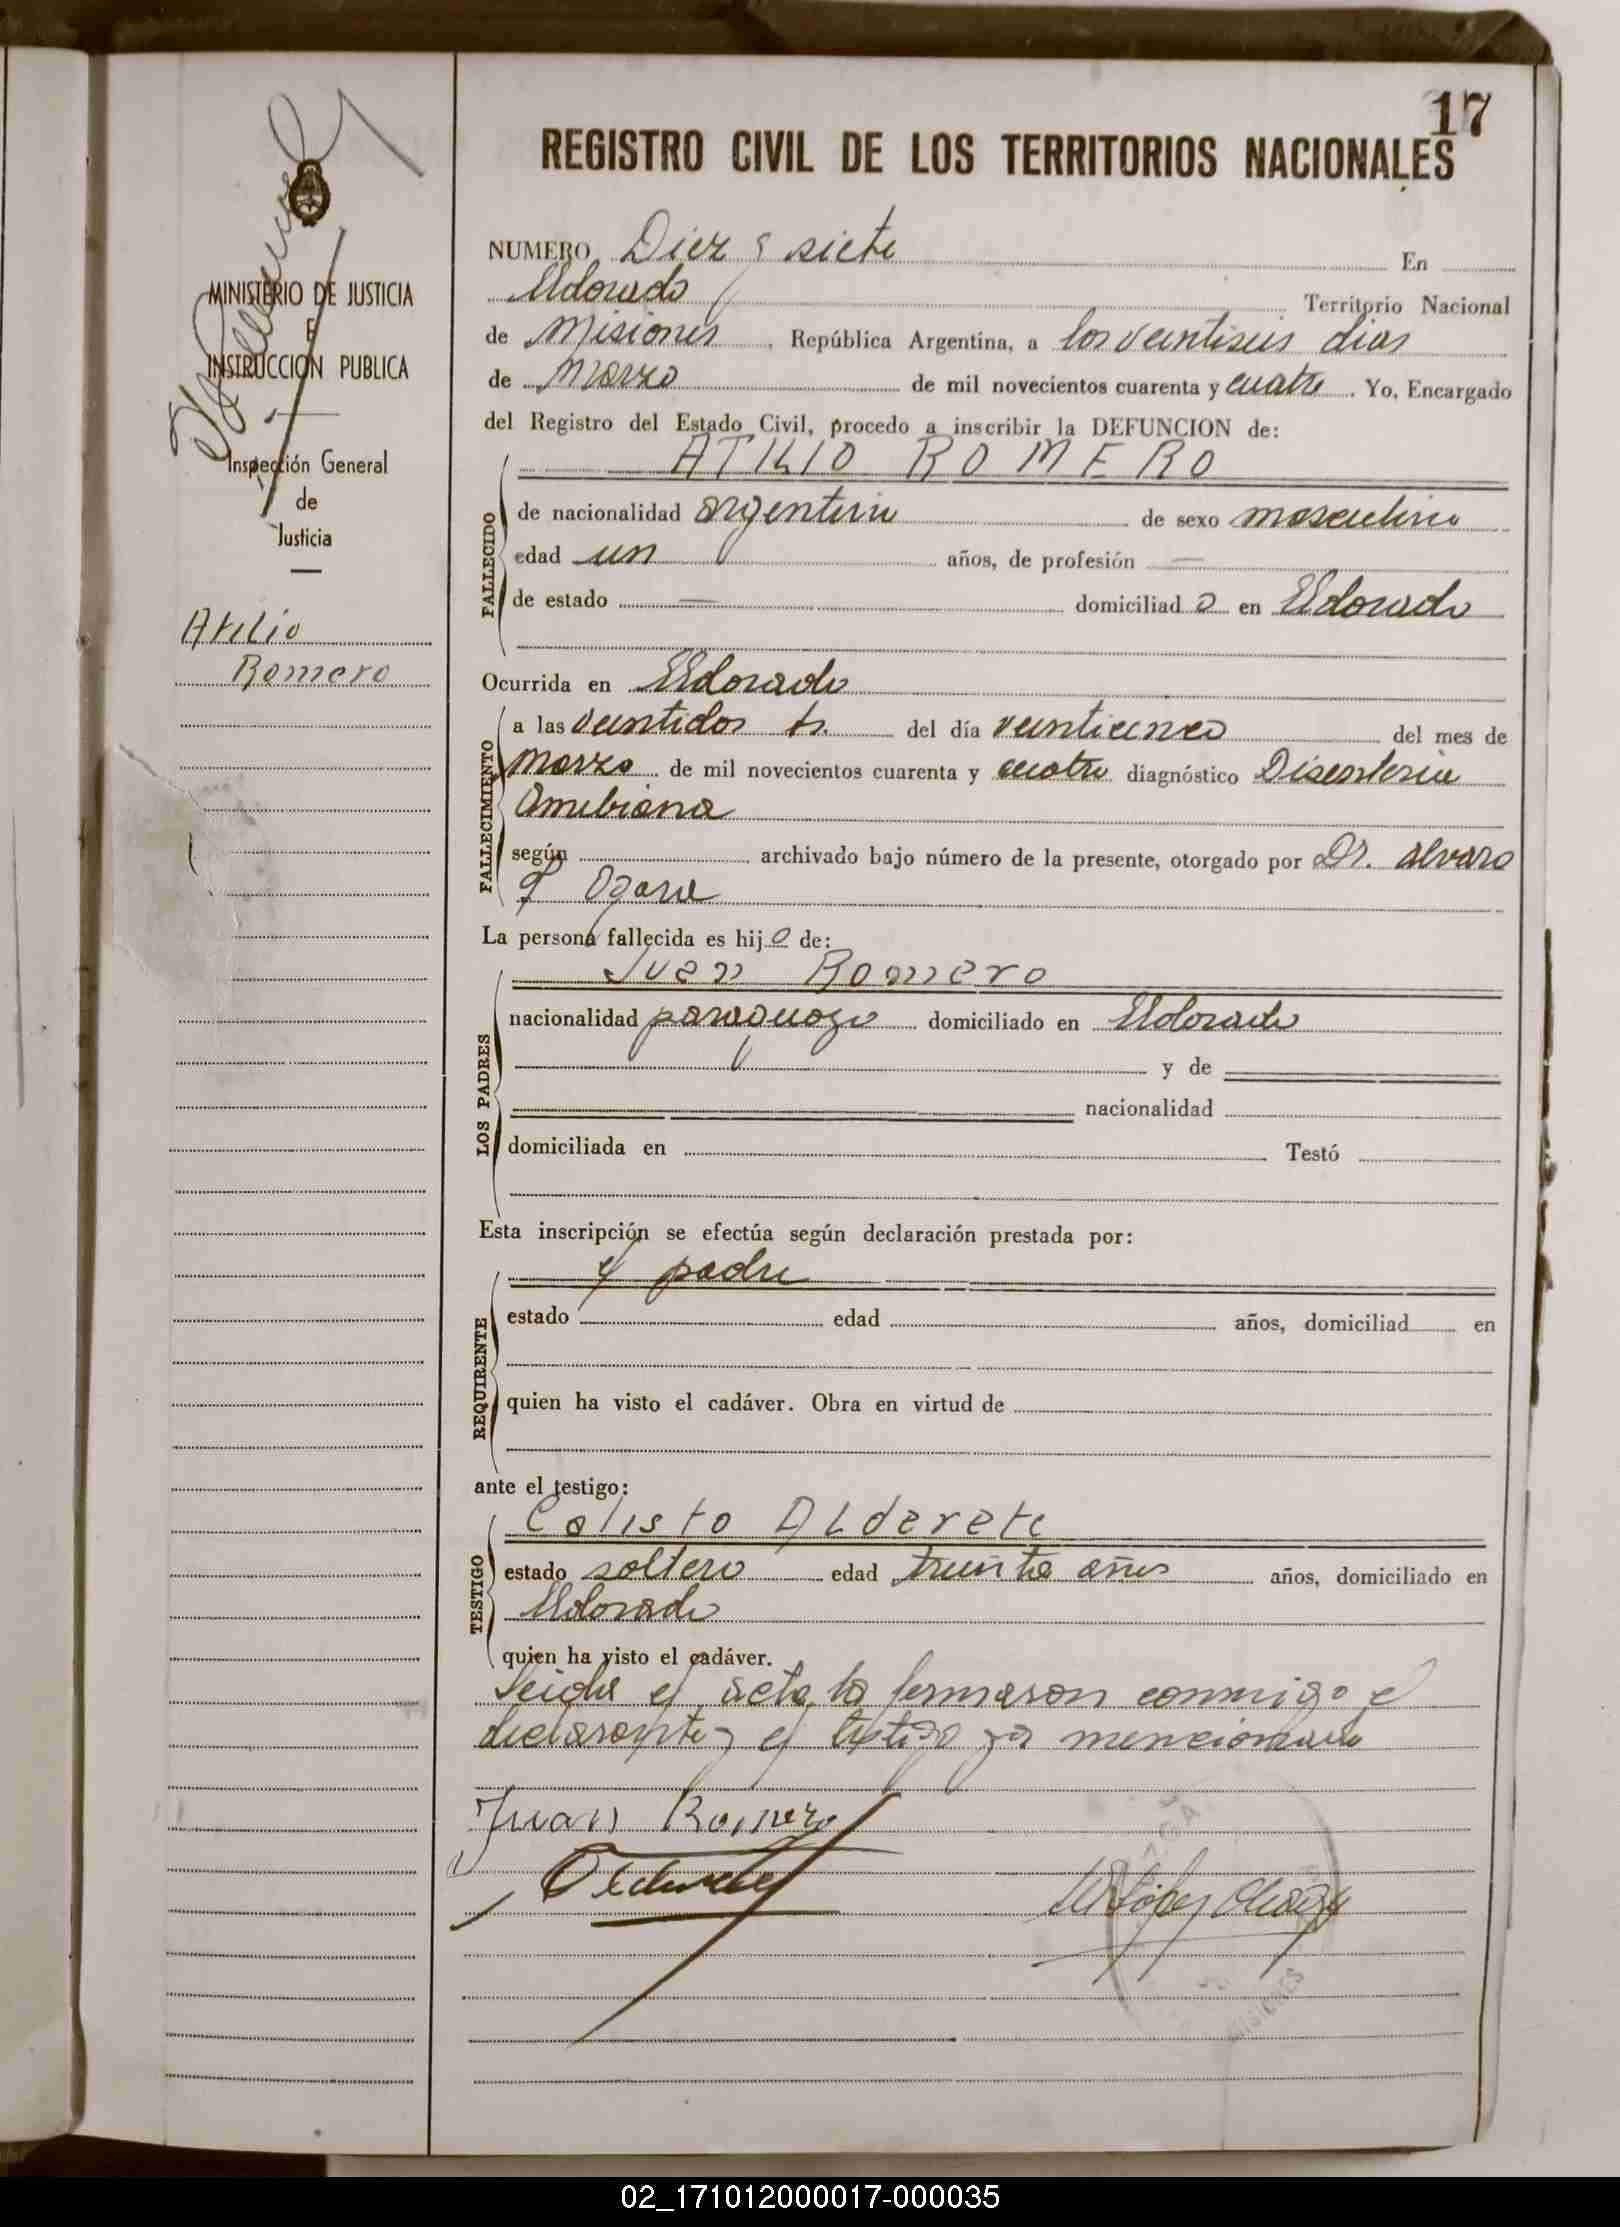 17
REGISTRO CIVIL DE LOS TERRITORIOS NACIONALES
MINISTERIO DE JUSTICIA
E
INSTRUCCION PUBLICA
Inspección General
de
Justicia
Atilio
Romero
NUMERO Diez y siete En
Eldorado Territorio Nacional
de Misiones, República Argentina, a los veintiseis dias
de Marzo de mil novecientos cuarenta y cuatro. Yo, Encargado
del Registro del Estado Civil, procedo a inscribir la DEFUNCION de:
ATILIO ROMERO
FALLECIDO
de nacionalidad argentina de sexo masculino
edad un años, de profesión —
de estado — domiciliado en Eldorado
Ocurrida en Eldorado
FALLECIMIENTO
a las veintidos hs. del día veinticinco del mes de
Marzo de mil novecientos cuarenta y cuatro diagnóstico Disenteria
Amebiana
según archivado bajo número de la presente, otorgado por Dr. Alvaro
Ogara
La persona fallecida es hijo de:
LOS PADRES
Juan Romero
nacionalidad paraguayo domiciliado en Eldorado
y de
nacionalidad
domiciliada en Testó
Esta inscripción se efectúa según declaración prestada por:
REQUIRENTE
el padre
estado edad años, domiciliad en
quien ha visto el cadáver. Obra en virtud de
ante el testigo:
TESTIGO
Calisto Alderete
estado soltero edad treinta años años, domiciliado en
Eldorado
quien ha visto el cadáver.
Leida el acta la firmaron conmigo el
declarante y el testigo ya mencionado
Juan Romero
MISIONES
02_171012000017-000035